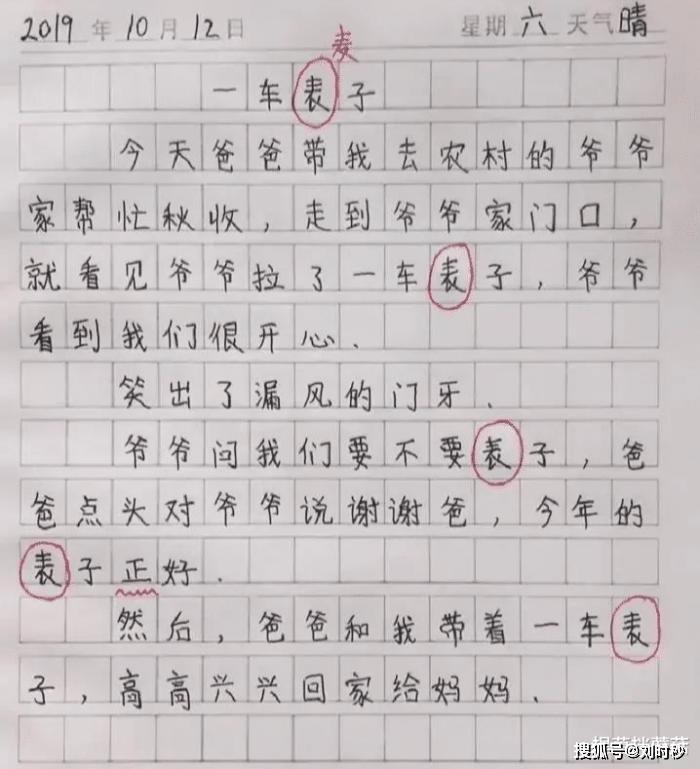 2019年10月12日 星期六 天气晴
麦
一车表子
今天爸爸带我去农村的爷爷
家帮忙秋收，走到爷爷家门口，
就看见爷爷拉了一车表子，爷爷
看到我们很开心．
笑出了漏风的门牙．
爷爷问我们要不要表子，爸
爸点头对爷爷说谢谢爸，今年的
表子正好．
然后，爸爸和我带着一车表
子，高高兴兴回家给妈妈．
搜狐号@刘时秒